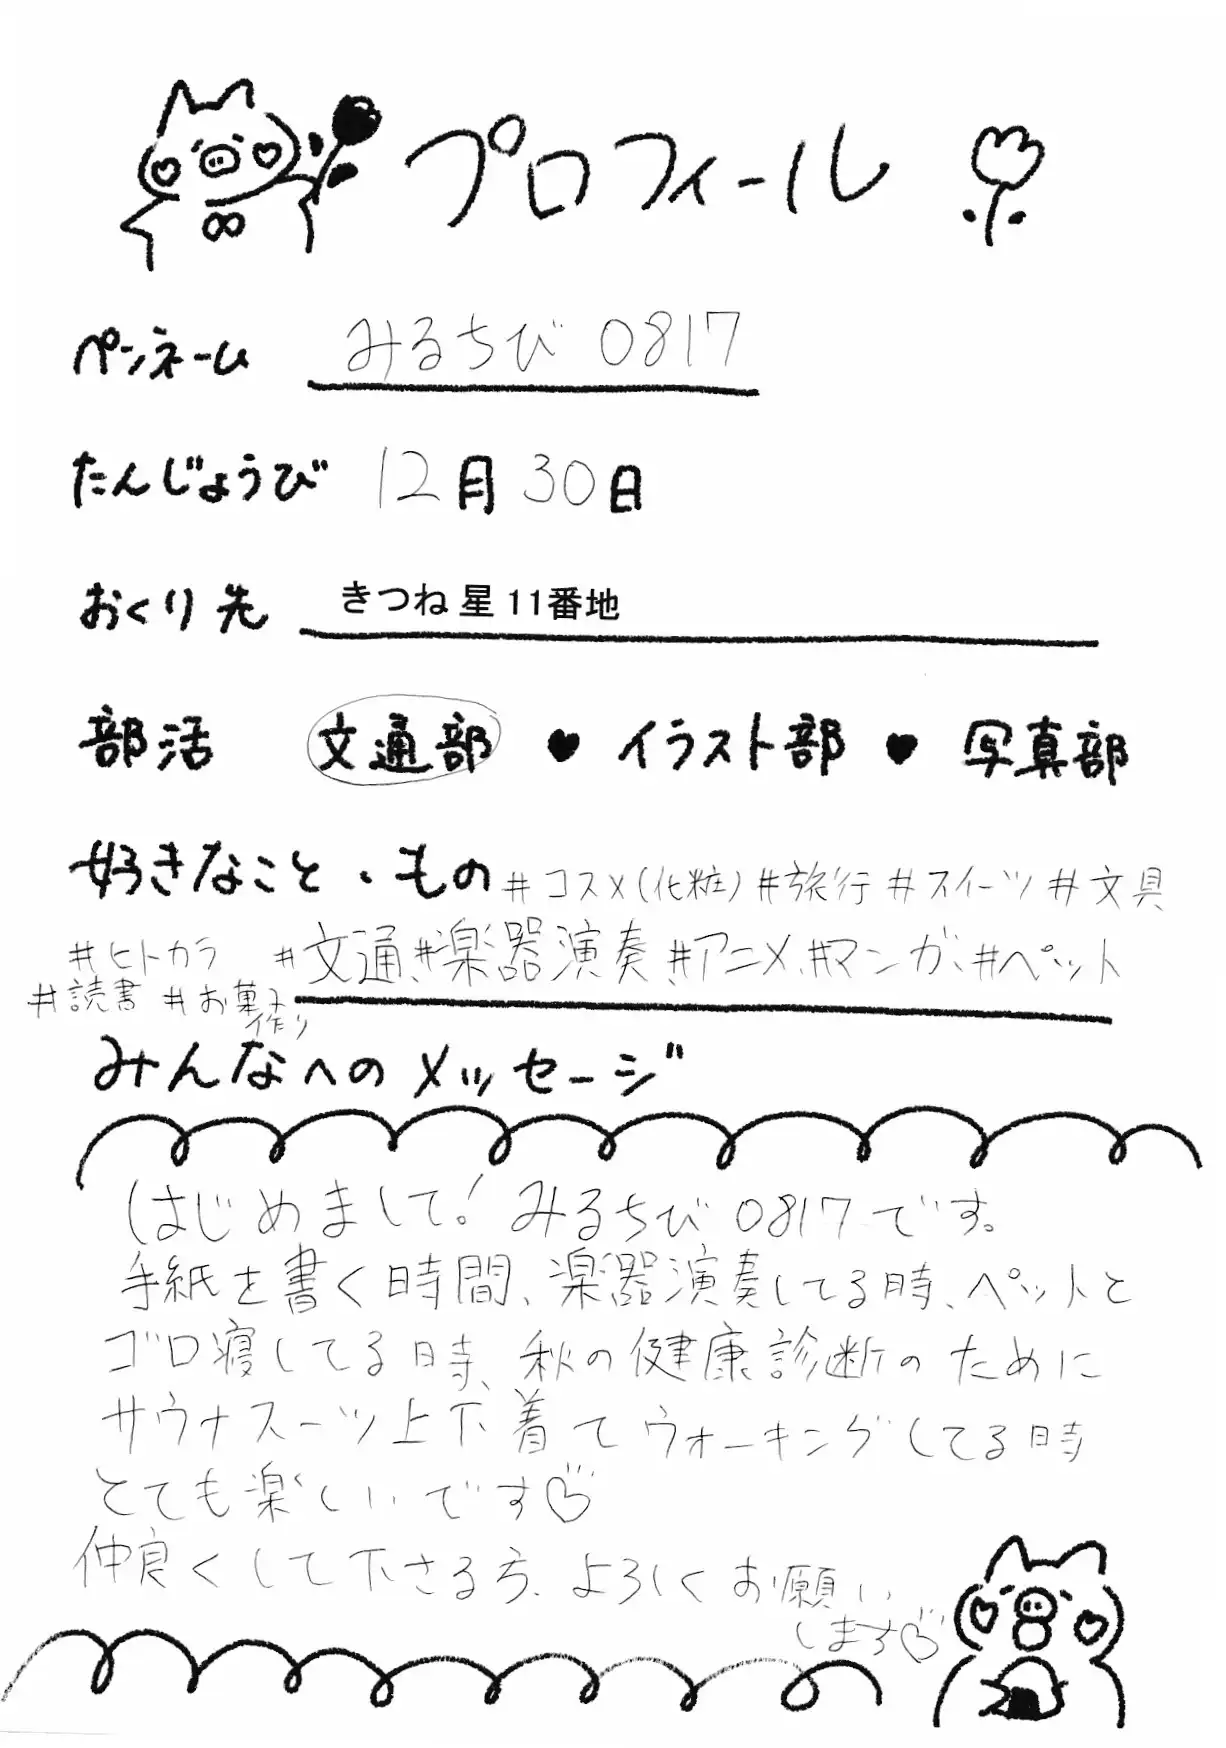 プロフィール
ペンネーム みるちび 0817
たんじょうび 12月30日
おくり先 きつね星11番地
部活 文通部 ♥ イラスト部 ♥ 写真部
好きなこと・もの #コスメ(化粧) #旅行 #スイーツ #文具
#ヒトカラ #文通、#楽器演奏、#アニメ、#マンガ、#ペット
#読書 #お菓子
作り
みんなへのメッセージ
はじめまして!みるちび0817です。
手紙を書く時間、楽器演奏してる時、ペットと
ゴロ寝してる時、秋の健康診断のために
サウナスーツ上下着てウォーキングしてる時
とても楽しいです♡
仲良くして下さる方、よろしくお願い
します♡